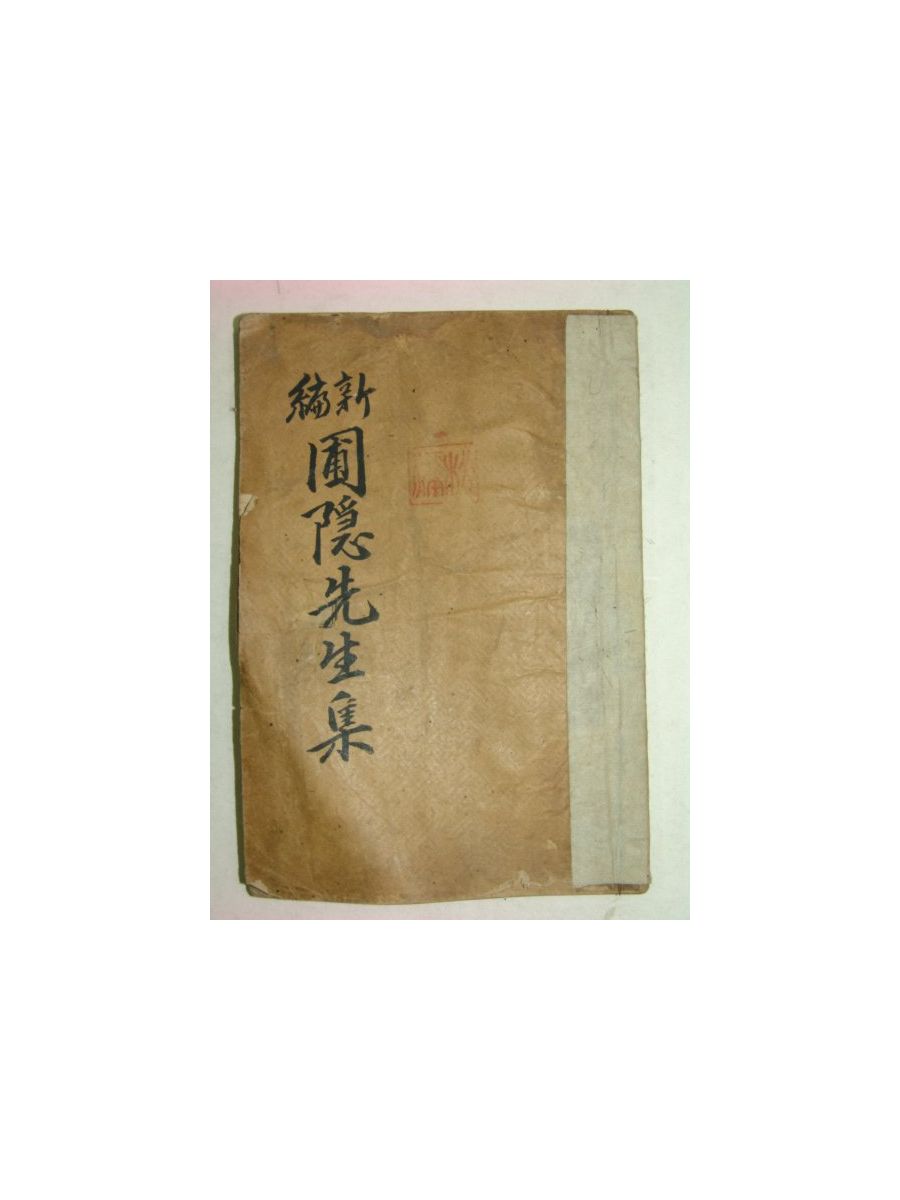 新編
圃隠先生集